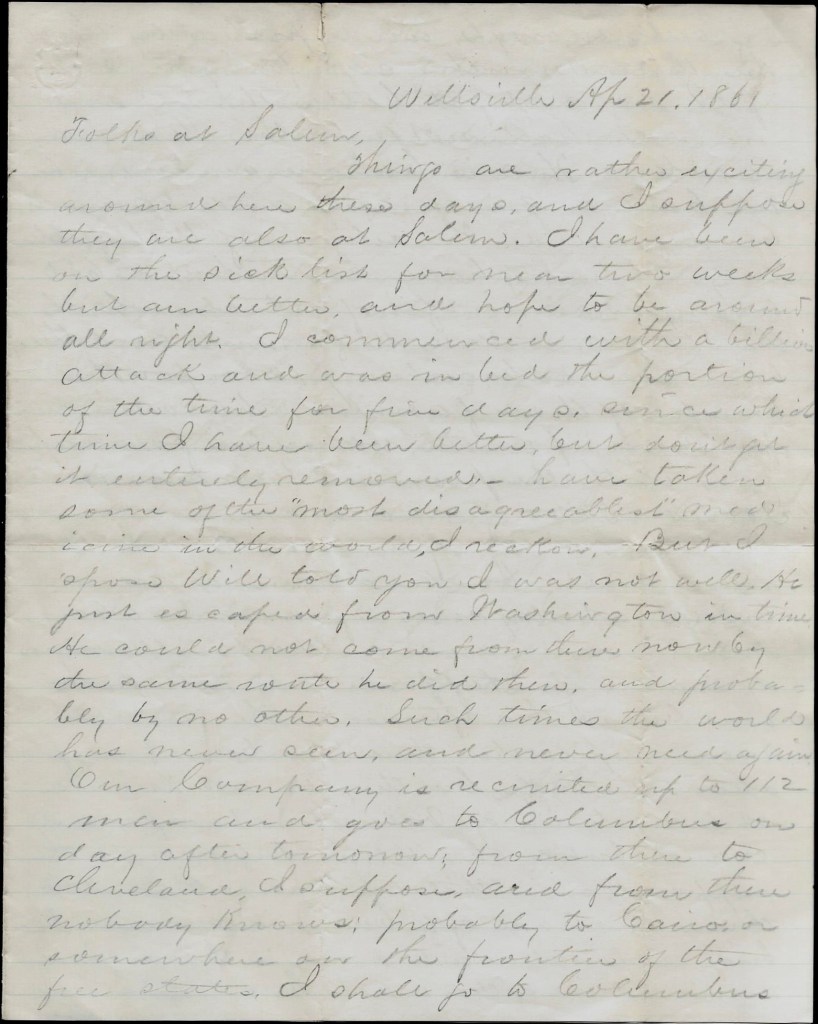 Wellsville Ap 21. 1861
Folks at Salem,
Things are rather exciting
around here these days, and I suppose
they are also at Salem. I have been
on the sick list for near two weeks
but am better, and hope to be around
all right. I commenced with a billious
attack and was in bed the portion
of the time for five days, since which
time I have been better, but dont get
it entirely removed, – have taken
some of the "most disagreeablest" med-
icine in the world, I reckon. But I
spose Will told you I was not well. He
just escaped from Washington in time
He could not come from there now by
the same route he did then, and proba-
bly by no other. Such times the world
has never seen, and never need again
Our Company is recruited up to 112
men and goes to Columbus on
day after tomorrow; from there to
Cleveland, I suppose, and from there
nobody Knows; probably to Cairo, or
somewhere on the frontier of the
free states. I shall go to Columbus